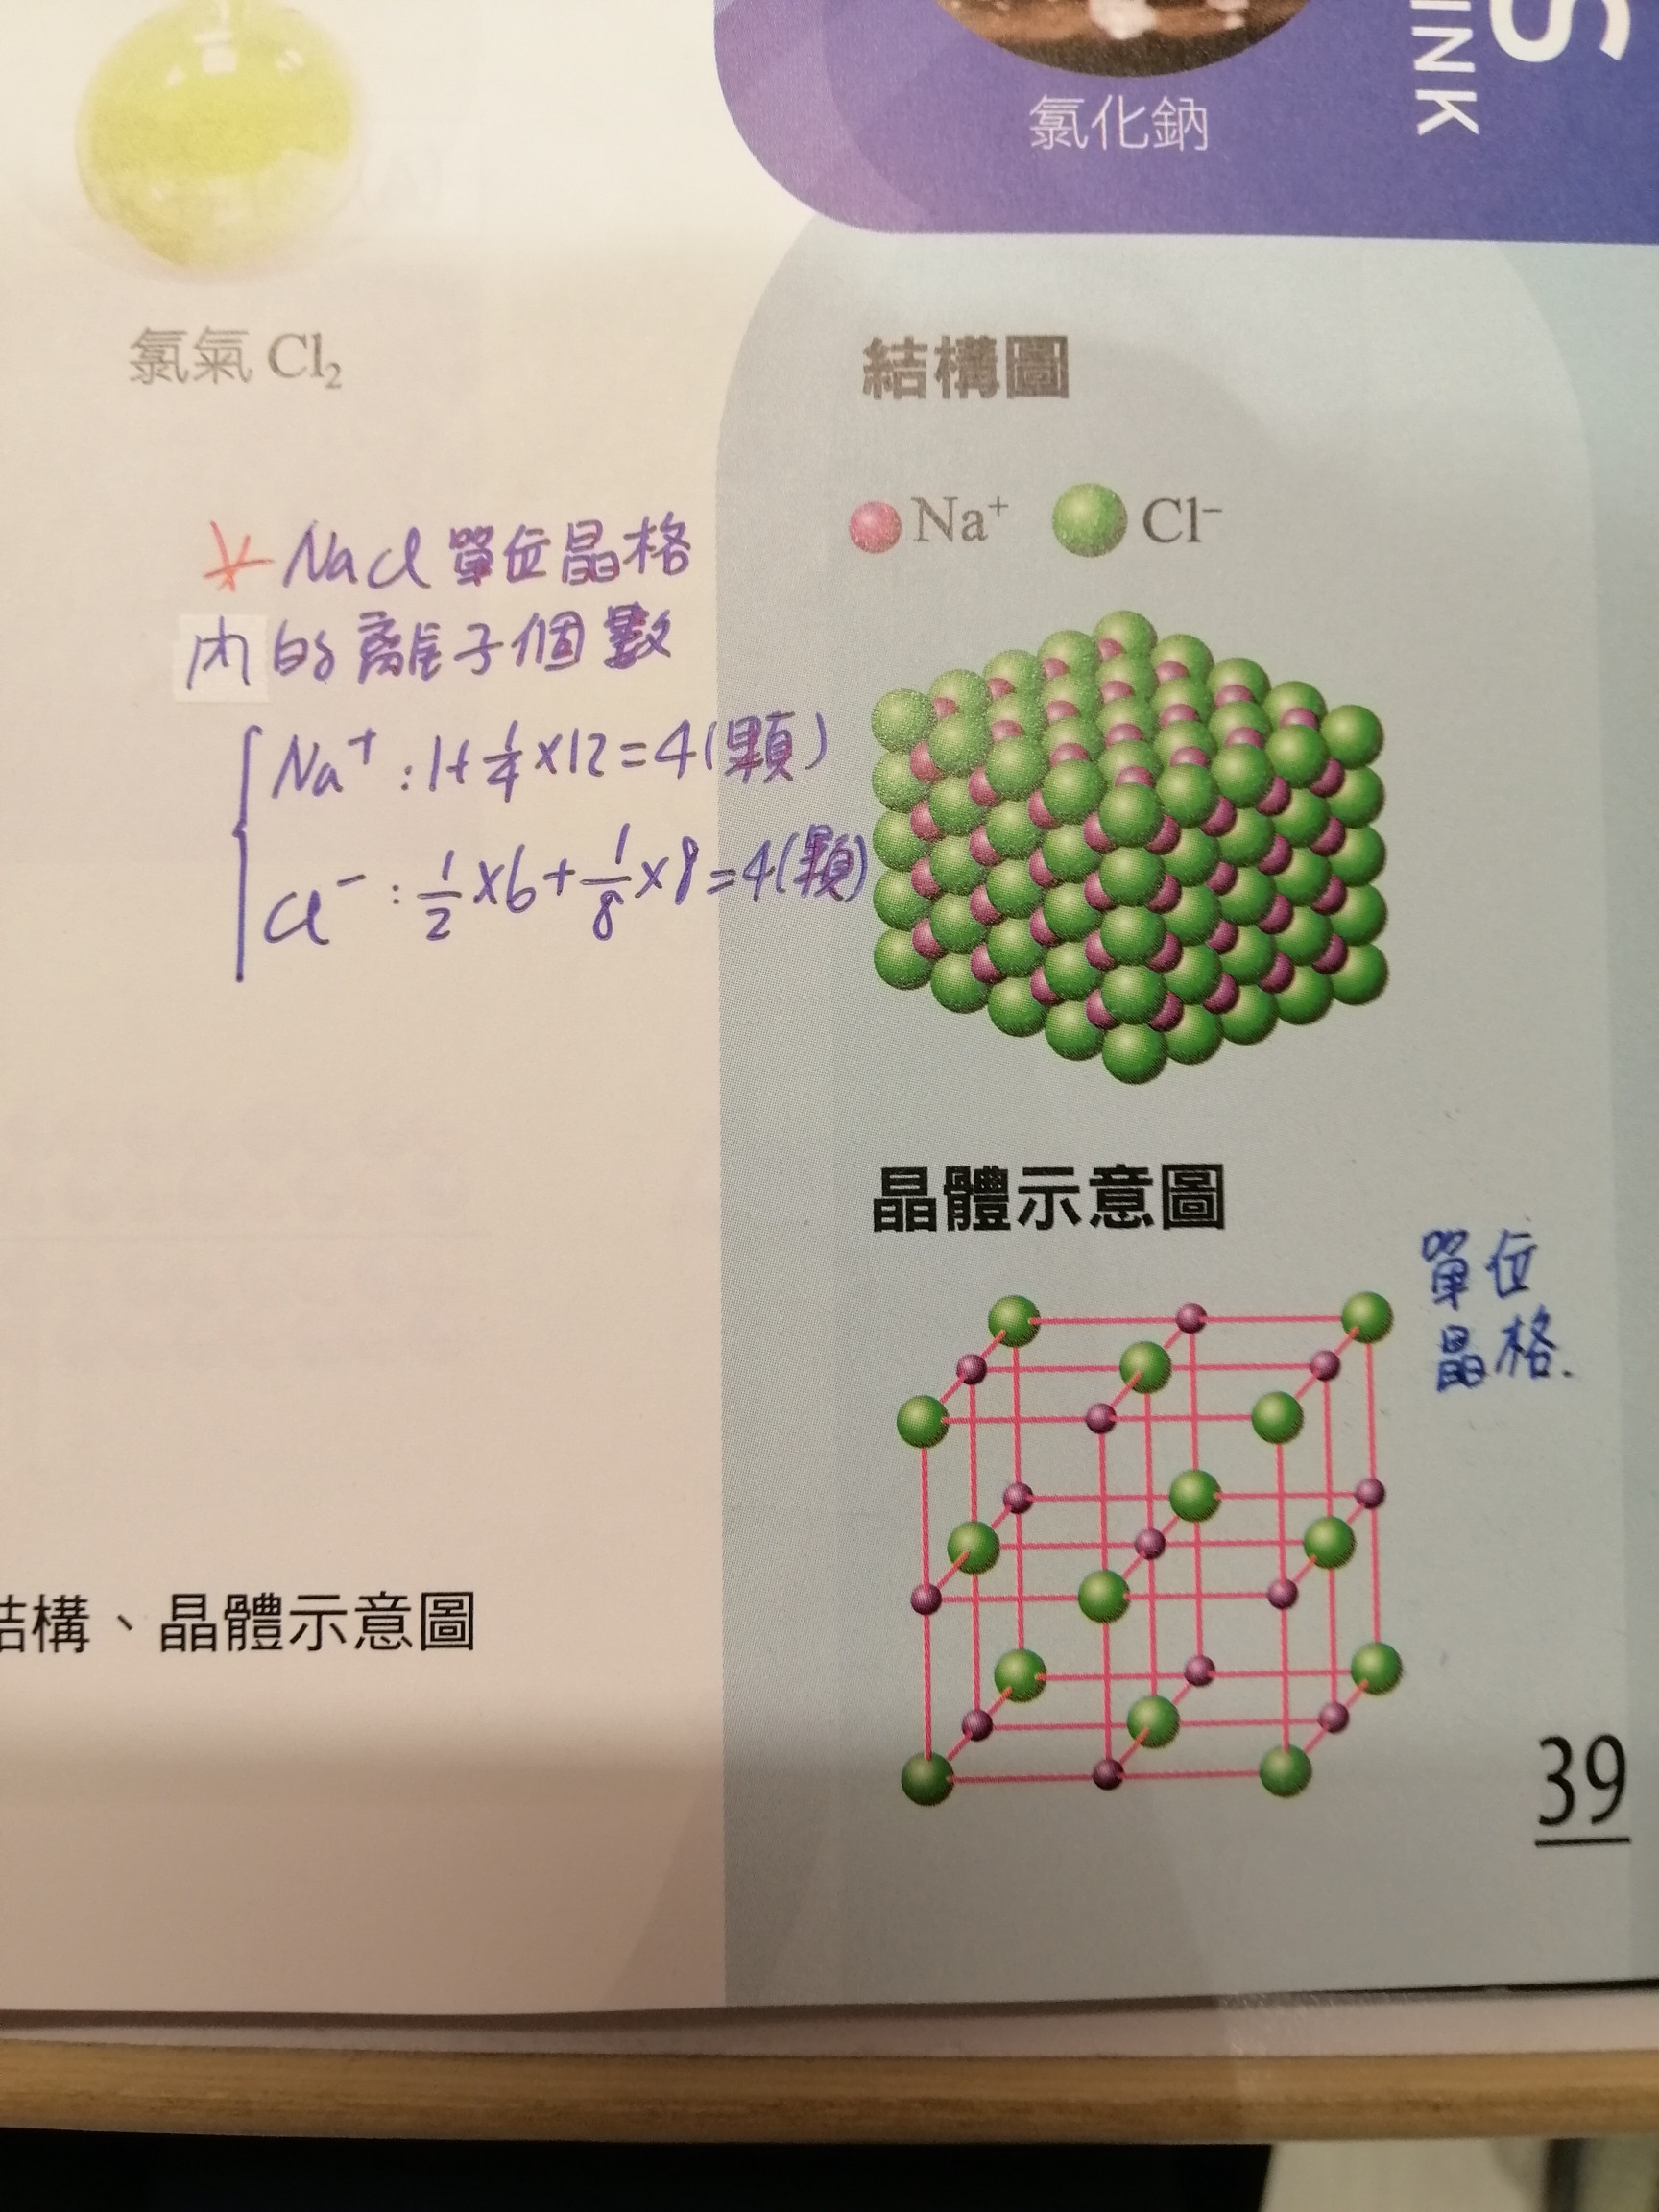 S
INK
氯化鈉
氯氣 Cl₂
結構圖
Na⁺ Cl⁻
* NaCl 單位晶格
內的離子個數
Na⁺ : 1+1/4×12=4(顆)
Cl⁻ : 1/2×6+1/8×8=4(顆)
晶體示意圖
單位
晶格.
結構、晶體示意圖
39